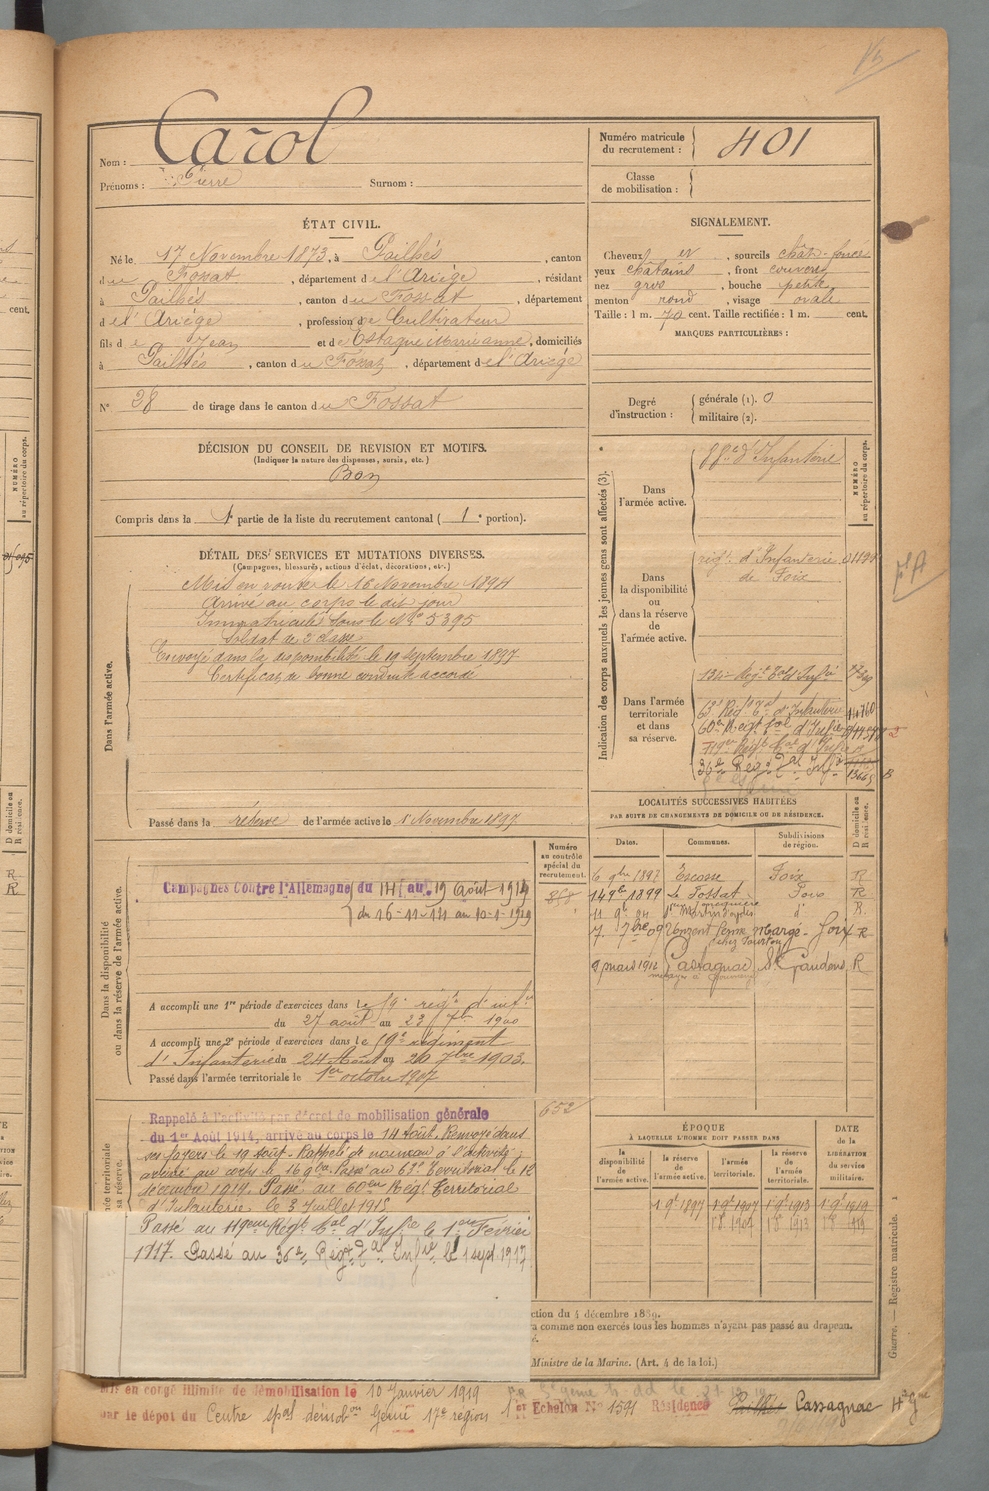 Nom : Carol
Prénoms : Pierre Surnom :
Numéro matricule du recrutement : 401
Classe de mobilisation :
ÉTAT CIVIL.
Né le 17 Novembre 1873, à Pailhès, canton
du Fossat, département de l'Ariége, résidant
à Pailhès, canton du Fossat, département
de l'Ariége, profession de Cultivateur
fils de Jean et de Estaque Marianne, domiciliés
à Pailhès, canton du Fossat, département de l'Ariége
N° 28 de tirage dans le canton du Fossat
SIGNALEMENT.
Cheveux et, sourcils chât. foncé
yeux châtains, front couvert
nez gros, bouche petite
menton rond, visage ovale
Taille : 1 m. 70 cent. Taille rectifiée : 1 m. cent.
MARQUES PARTICULIÈRES :
Degré d'instruction : générale (1). 0
militaire (2).
DÉCISION DU CONSEIL DE REVISION ET MOTIFS.
(Indiquer la nature des dispenses, sursis, etc.)
Bon
Compris dans la 1e partie de la liste du recrutement cantonal ( 1e portion).
DÉTAIL DES SERVICES ET MUTATIONS DIVERSES.
(Campagnes, blessures, actions d'éclat, décorations, etc.)
Dans l'armée active.
Mis en route le 16 Novembre 1894
Arrivé au corps le dit jour
Immatriculé sous le No 5395
Soldat de 2 classe
Envoyé dans la disponibilité le 19 Septembre 1897
Certificat de bonne conduite accordé
Passé dans la réserve de l'armée active le 1 Novembre 1897
Indication des corps auxquels les jeunes gens sont affectés (3).
NUMÉRO au répertoire du corps.
Dans l'armée active.
88e d'Infanterie
Dans la disponibilité ou dans la réserve de l'armée active.
régt d'Infanterie
de Foix
Dans l'armée territoriale et dans sa réserve.
134e Régt Tal d'Infie
60e Régt Tal d'Infie
119e Régt Tal d'Infie
36e Régt Tal Infie
LOCALITÉS SUCCESSIVES HABITÉES
PAR SUITE DE CHANGEMENTS DE DOMICILE OU DE RÉSIDENCE.
Dates. Communes. Subdivisions de région. D domicile ou R résidence.
6 9bre 1898 Escosse Foix R
14 9bre 1899 Le Fossat Foix R
R
7. 7bre 09 Unzent Foix R
chez Tourton
9 mars 1912 Cassagnac St Gaudens R
Numéro au contrôle spécial du recrutement.
Dans la disponibilité ou dans la réserve de l'armée active.
Campagnes contre l'Allemagne du 14 au 19 Août 1914
du 16-11-14 au 10-1-1919
A accompli une 1re période d'exercices dans le 59e régt d'infie
du 27 août au 23 7b 1900
A accompli une 2e période d'exercices dans le 59e régiment
d'Infanterie du 24 Août au 20 7bre 1903.
Passé dans l'armée territoriale le 1er octobre 1907
652
Rappelé à l'activité par décret de mobilisation générale
du 1er Août 1914, arrivé au corps le 14 Août. Renvoyé dans
ses foyers le 19 août. Rappelé de nouveau à l'activité
arrivé au corps le 16 9bre. Passé au 62e Territorial le 12
décembre 1914. Passé au 60em Régt Territorial
d'Infanterie le 3 Juillet 1915
Passé au 119eme Régt Tal d'Infie le 1er Fevrier
1917. Passé au 36e Régt Tal Infie le 1 sept. 1917
ÉPOQUE
À LAQUELLE L'HOMME DOIT PASSER DANS
la disponibilité de l'armée active. la réserve de l'armée active. l'armée territoriale. la réserve de l'armée territoriale.
DATE de la LIBÉRATION du service militaire.
1 9t 1897 1 9t 1907 1 9t 1913 1 9t 1919
ction du 4 décembre 1889.
comme non exercés tous les hommes n'ayant pas passé au drapeau.
Ministre de la Marine. (Art. 4 de la loi.)
Guerre. — Registre matricule. 1
Mis en congé illimité de démobilisation le 10 Janvier 1919
par le dépot du Centre spal démobon Génie 17e région 1er Echelon No 1591 Résidence Pailhès Cassagnac Hte Gne